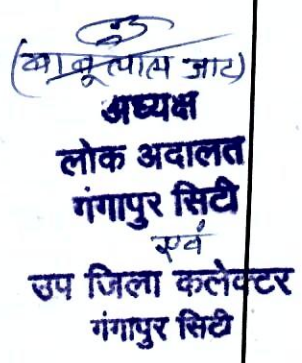 (बाबूलाल जाट)
अध्यक्ष
लोक अदालत
गंगापुर सिटी
एवं
उप जिला कलेक्टर
गंगापुर सिटी